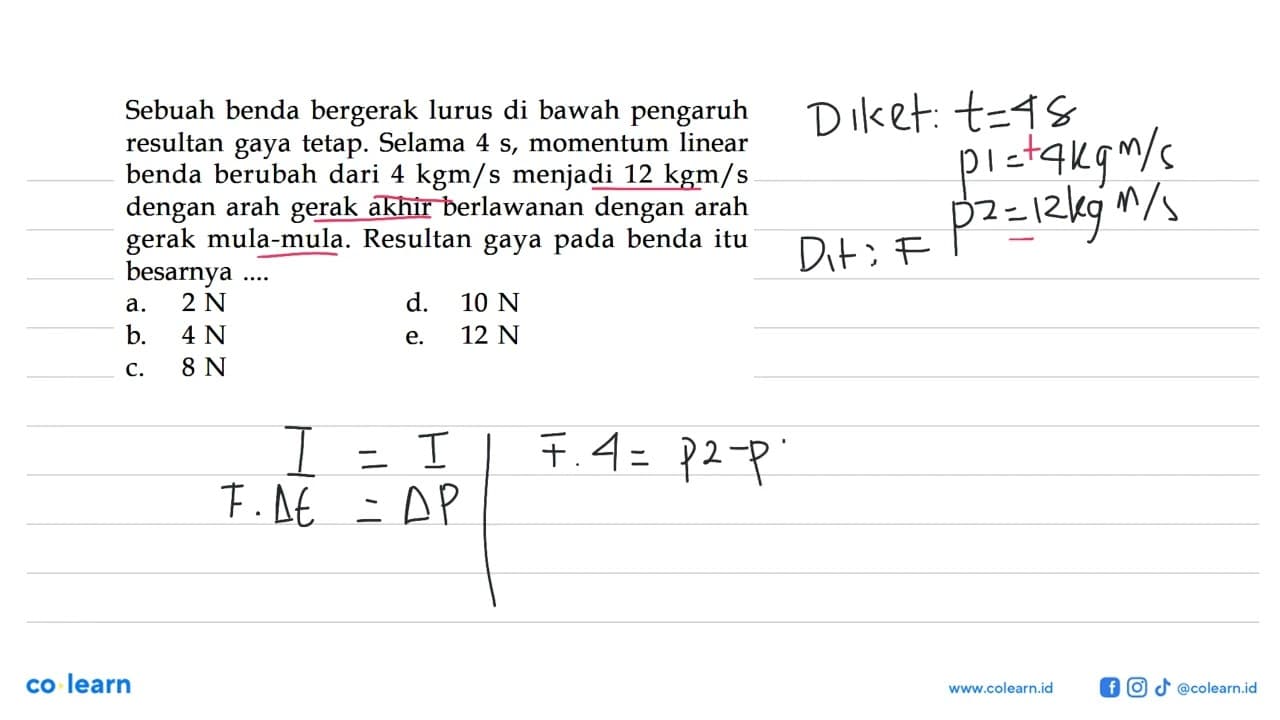 Sebuah benda bergerak lurus di bawah pengaruh
resultan gaya tetap. Selama 4 s, momentum linear
benda berubah dari 4 kgm/s menjadi 12 kgm/s
dengan arah gerak akhir berlawanan dengan arah
gerak mula-mula. Resultan gaya pada benda itu
besarnya ....
a. 2 N d. 10 N
b. 4 N e. 12 N
c. 8 N
Diket: t=4s
p1=+4kg m/s
p2=-12kg m/s
Dit: F
I = I
F.Δt = ΔP
F.4= p2-p
co learn
www.colearn.id
@colearn.id